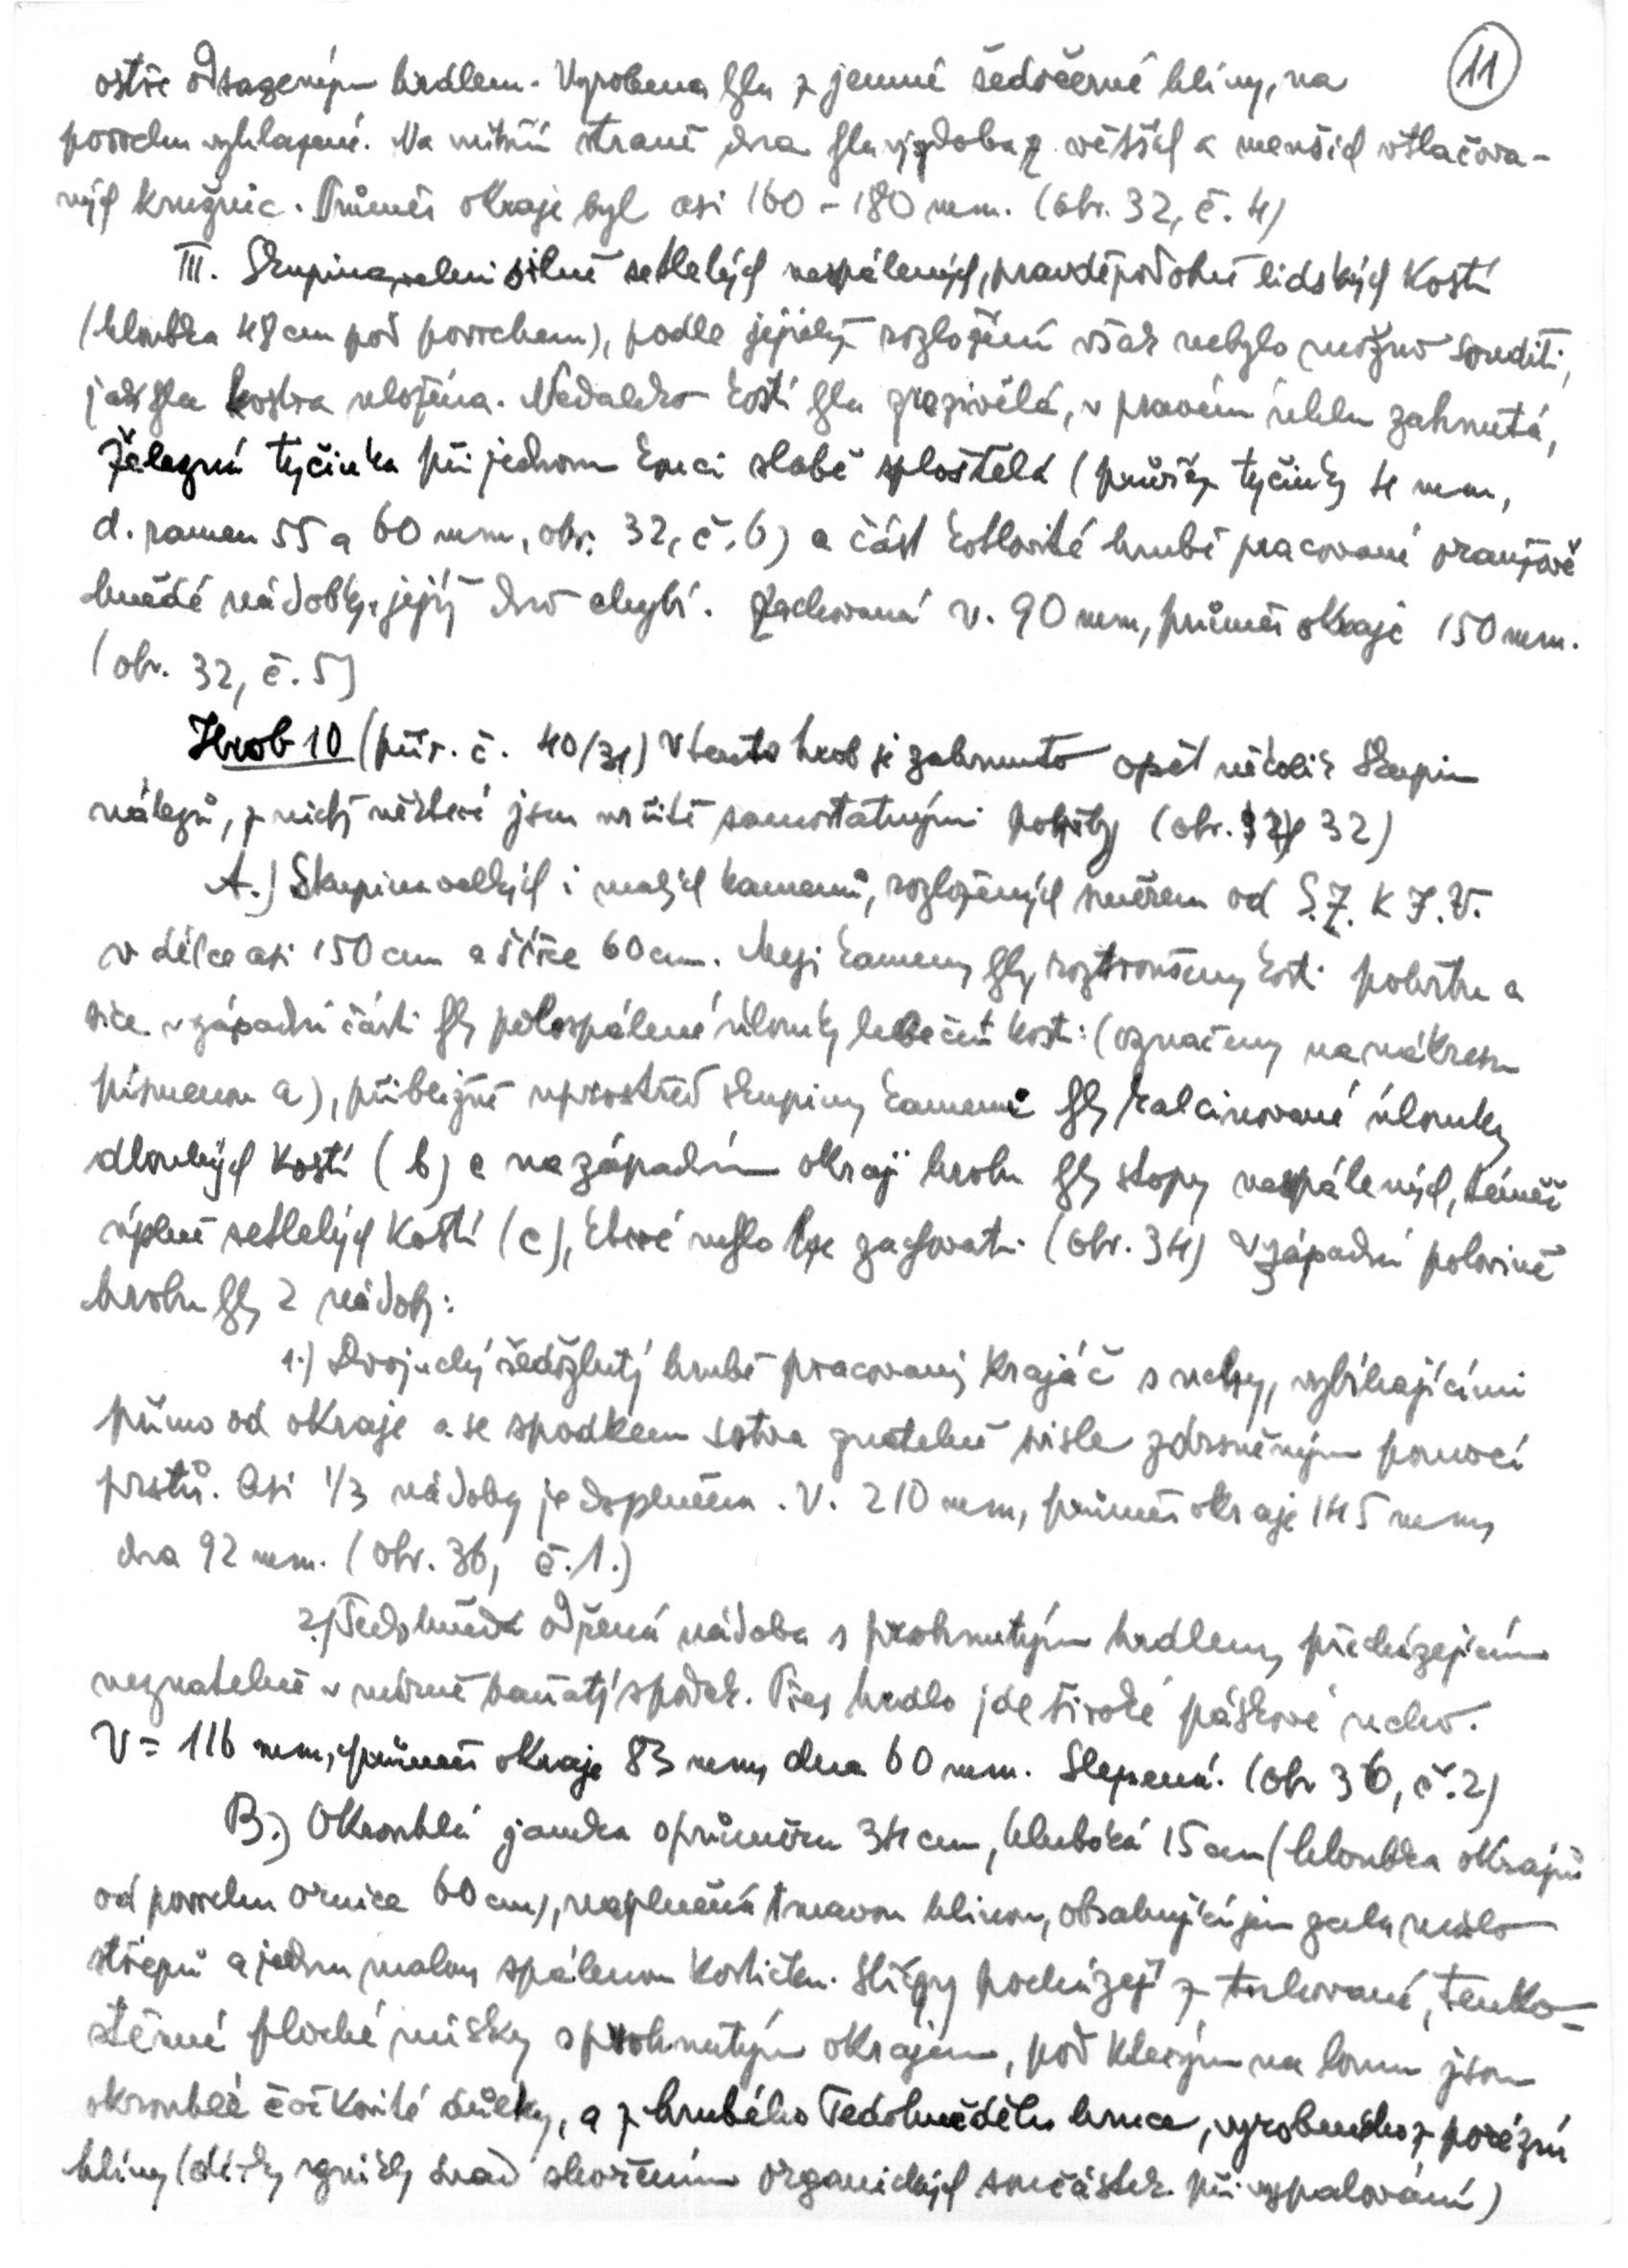 11
ostře odsazeným hrdlem. Vyrobena byla z jemné šedočerné hlíny, na
povrchu vyhlazené. Na vnitřní straně dna byla výzdoba z větších a menších vtlačova-
ných kružnic. Průměr okraje byl asi 160 - 180 mm. (obr. 32, č. 4)
III. Skupina velmi silně setlelých nespálených, pravděpodobně lidských kostí
(hloubka 48 cm pod povrchem), podle jejichž rozložení však nebylo možno souditi,
jak byla kostra uložena. Nedaleko kostí byla zrezivělá, v pravém úhlu zahnutá,
železná tyčinka při jednom konci slabě sploštělá (průřez tyčinky 4 mm,
d. ramen 55 a 60 mm, obr. 32, č. 6) a část kotlovité hrubě pracované oranžově
hnědé nádobky, jejíž dno chybí. Zachovaná v. 90 mm, průměr okraje 150 mm.
(obr. 32, č. 5)
Hrob 10 (přír. č. 40/31) V tento hrob je zahrnuto opět několik skupin
nálezů, z nichž některé jsou určitě samostatnými pohřby (obr. 32)
A.) Skupina velkých i malých kamenů, rozložených směrem od S.Z. k J.V.
v délce asi 150 cm a šířce 60 cm. Mezi kameny byly roztroušeny kosti pohřbu a
sice v západní části byly polospálené úlomky lebečních kostí (označeny na nákresu
písmenem a), přibližně uprostřed skupiny kamenů byly kalcinované úlomky
dlouhých kostí (b) a na západním okraji hrobu byly stopy nespálených, téměř
úplně setlelých kostí (c), které nešlo lze zachovati. (obr. 34) V západní polovině
hrobu byly 2 nádoby:
1.) Dvojuchý šedožlutý hrubě pracovaný krajáč s uchy, vybíhajícími
přímo od okraje a se spodkem sotva znatelně svisle zdrsněným pomocí
prstů. Asi 1/3 nádoby je doplněna. V. 210 mm, průměr okraje 145 mm,
dna 92 mm. (obr. 36, č. 1.)
2.) Šedohnědá odřená nádoba s prohnutým hrdlem, přecházejícím
neznatelně v mírně baňatý spodek. Přes hrdlo jde široké páskové ucho.
V = 116 mm, průměr okraje 83 mm, dna 60 mm. Slepená. (obr 36, č. 2)
B.) Okrouhlá jamka o průměru 34 cm, hluboká 15 cm (hloubka okrajů
od povrchu ornice 60 cm), naplněná tmavou hlínou, obsahující jen zcela málo
střepů a jednu malou spálenou kostičku. Střepy pocházejí z tuhované, tenko-
stěnné ploché misky s prohnutým okrajem, pod kterým na lomu jsou
okrouhlé čočkovité důlky, a z hrubého šedohnědého hrnce, vyrobeného z porézní
hlíny (dírky vznikly snad shořením organických součástek při vypalování)